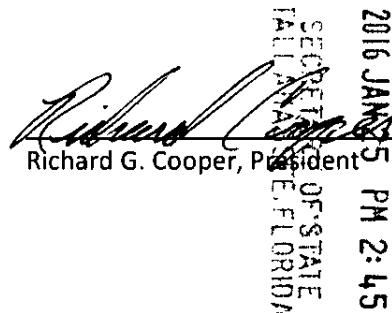 Richard Cooper
Richard G. Cooper, President
2016 JAN 5 PM 2:45
SECRETARY OF STATE
TALLAHASSEE, FLORIDA